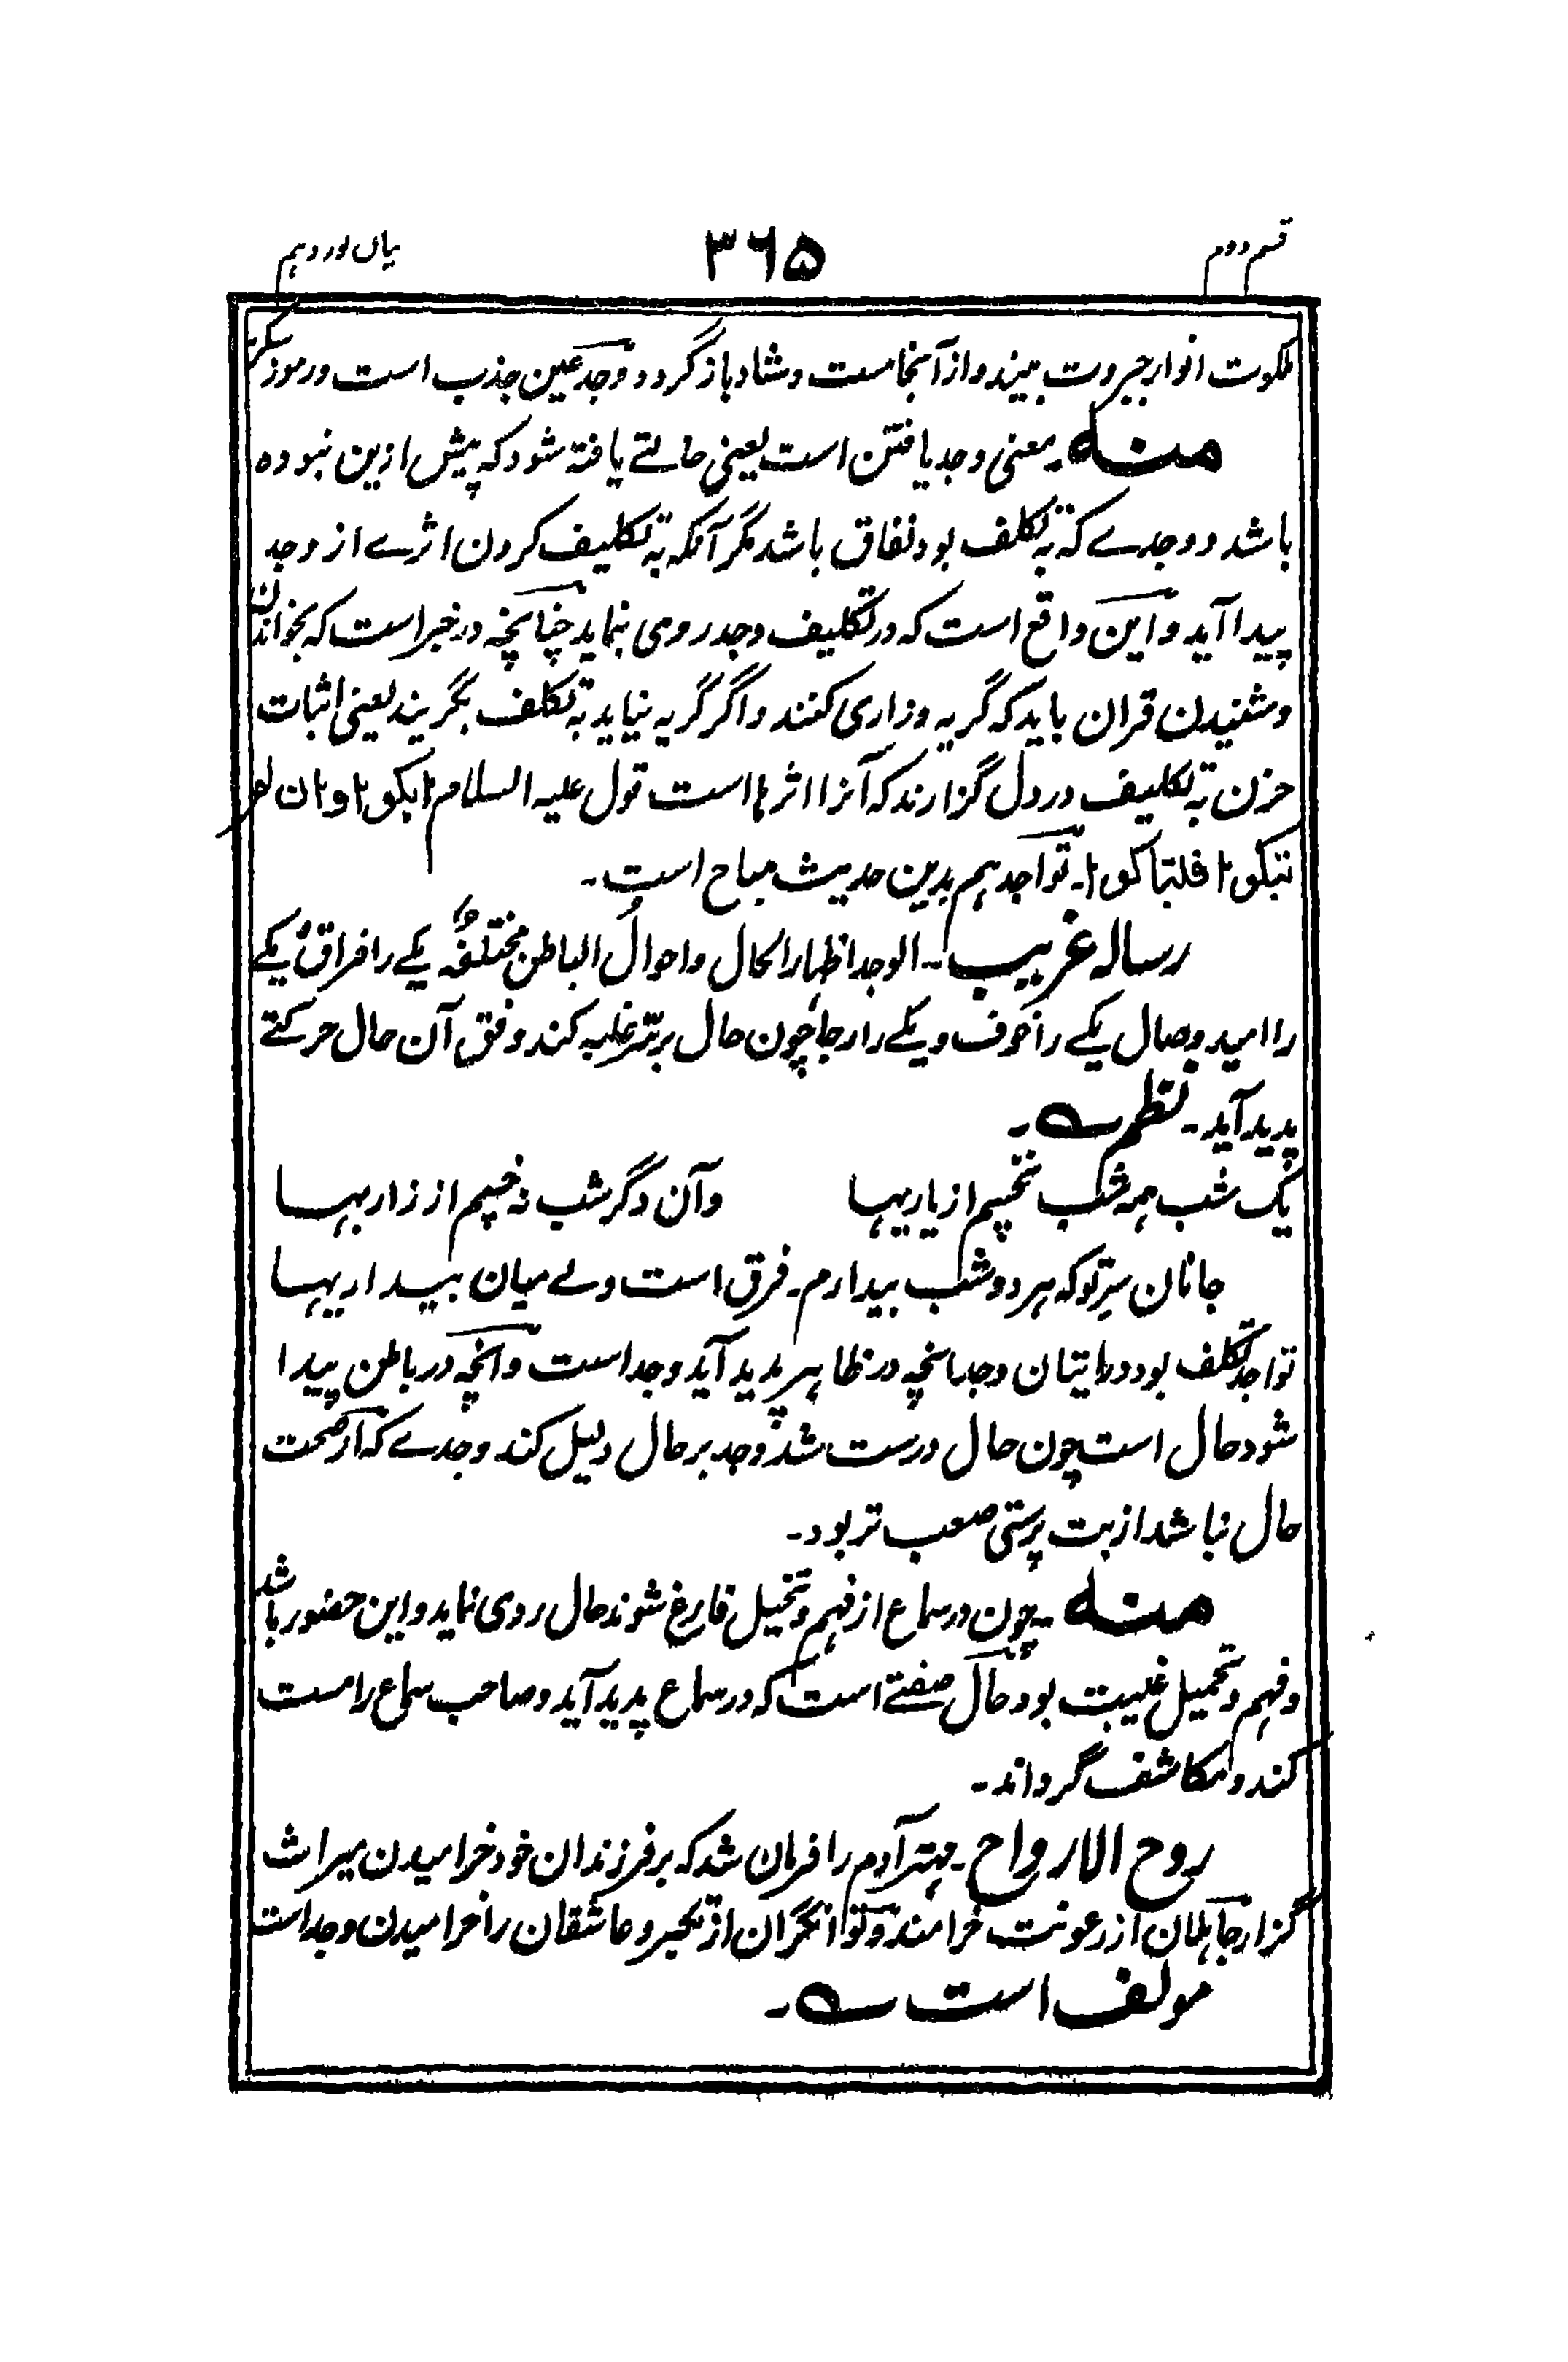 قسم دوم
۳۶۵
بیان نوردہم
ملکوت انوار جبروت بیند و از آنجا مست و شاد باز گردد و وجد عین جذب است و رموز سکر
منہ۔ معنی وجد یافتن است یعنی حالتے یافتہ شود کہ پیش ازین نبودہ
باشد و وجدے کہ بہ تکلف بود نفاق باشد مگر آنکہ بہ تکلیف کردن اثرے از وجد
پیدا آید و این واقع است کہ در تکلیف وجد روی بنماید چنانچہ در خبر است کہ بخواندن
و شنیدن قران باید کہ گریہ و زاری کنند و اگر گریہ نیاید بہ تکلف بگریند یعنی اثبات
حزن بہ تکلیف در دل گزارند کہ آنرا اثرہا است قول علیہ السلام ابکوا وان لم
تبکوا فلتباکوا۔ تواجد ہم بدین حدیث مباح است۔
رسالہ غریب۔ الوجد اظہار الحال و احوال الباطن مختلفۃ یکے را فراق یکے
را امید وصال یکے را خوف و یکے را رجا چون حال بر سّر غلبہ کند وفق آن حال حرکتے
پدید آید۔ نظم ؎۔
یک شب ہمہ شب نخسپم از یاریہا وآن دگر شب نہ خسپم از زاریہا
جانان سرِ تو کہ ہر دو شب بیدارم۔ فرق است ولے میان بیداریہا
تواجد تکلف بود و راتیان وجد انچہ در ظاہر پدید آید وجد است و انچہ در باطن پیدا
شود حال است چون حال درست شد وجد بر حال دلیل کند وجدے کہ از صحت
حال نباشد از بت پرستی صعب تر بود۔
منہ۔ چون در سماع از فہم و تخیل فارغ شوند حال روی نماید و این حضور باشد
و فہم و تخیل غیبت بود حال صفتے است کہ در سماع پدید آید و صاحب سماع را مست
کند و مکاشف گرداند۔
روح الارواح۔ مہتر آدم را فرمان شد کہ بر فرزندان خود خرامیدن میراث
گزار جاہلان از رعونت خرامند و توانگران از تکبر و عاشقان را خرامیدن وجد است
مولف است ؎۔